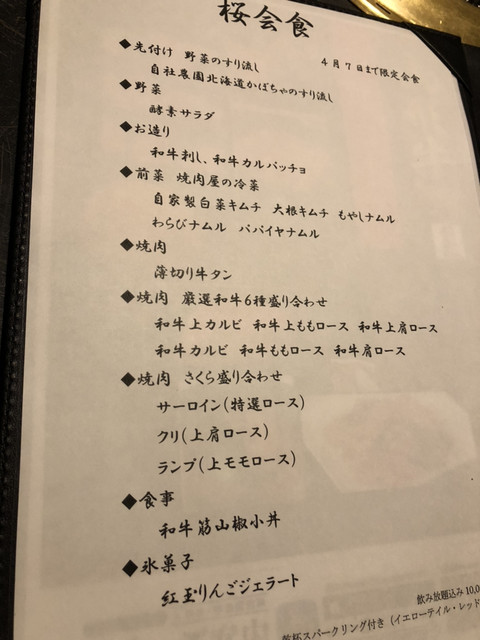 桜会食
4月7日まで限定会食
◆先付け 野菜のすり流し
自社農園北海道かぼちゃのすり流し
◆野菜
酵素サラダ
◆お造り
和牛刺し、和牛カルパッチョ
◆前菜 焼肉屋の冷菜
自家製白菜キムチ 大根キムチ もやしナムル
わらびナムル パパイヤナムル
◆焼肉
薄切り牛タン
◆焼肉 厳選和牛6種盛り合わせ
和牛上カルビ 和牛上ももロース 和牛上肩ロース
和牛カルビ 和牛ももロース 和牛肩ロース
◆焼肉 さくら盛り合わせ
サーロイン(特選ロース)
クリ(上肩ロース)
ランプ(上モモロース)
◆食事
和牛筋山椒小丼
◆氷菓子
紅玉りんごジェラート
飲み放題込み10,0
乾杯スパークリング付き(イエローテイル・レッド